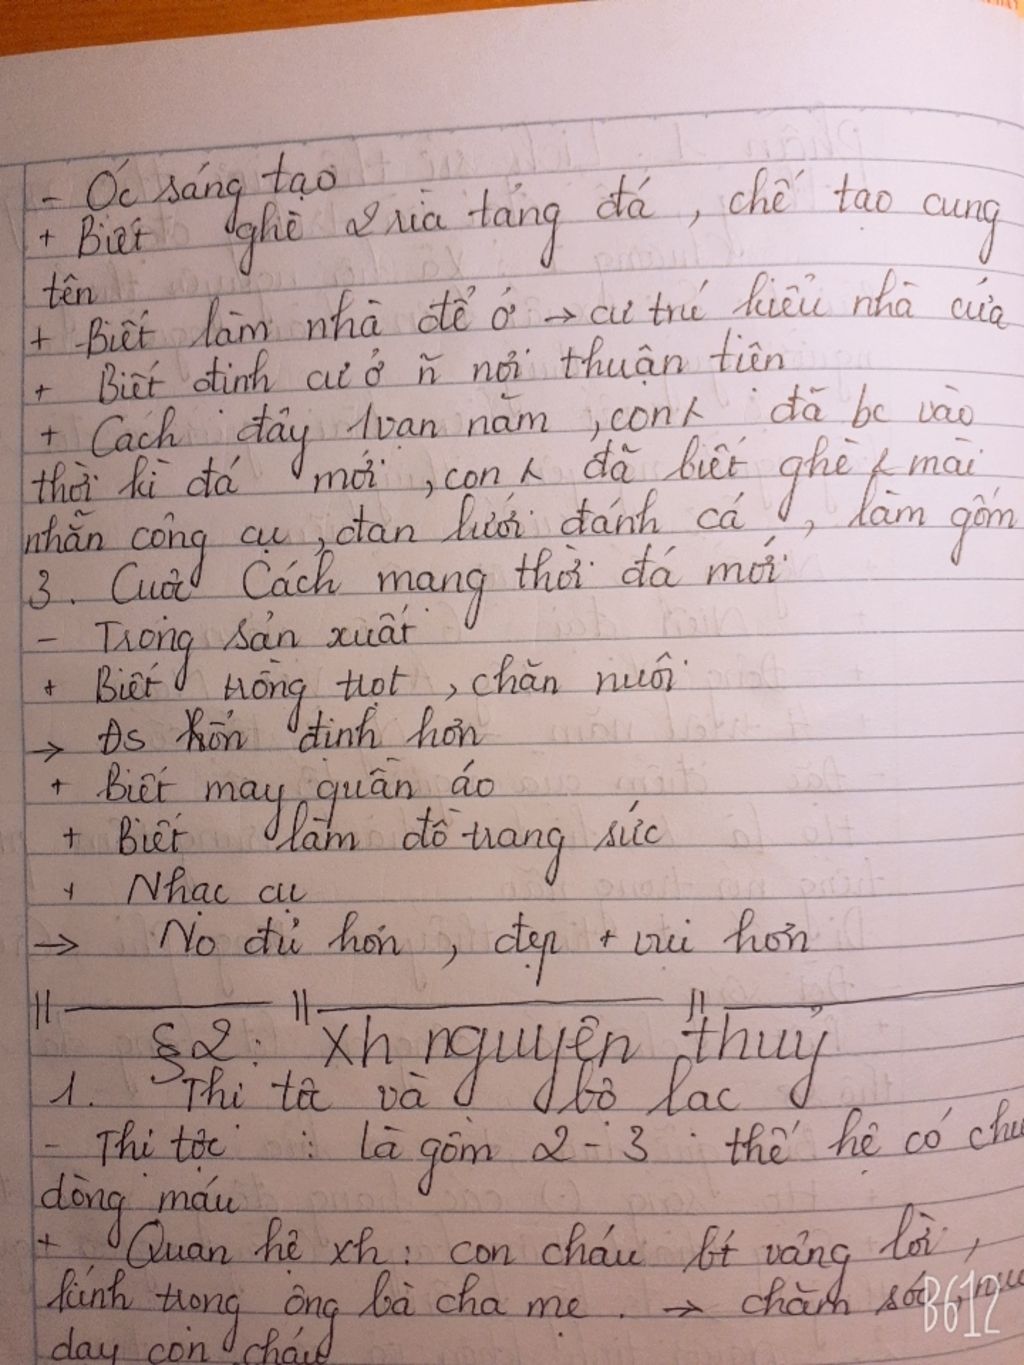 - Óc sáng tạo
+ Biết ghè 2 rìa tảng đá, chế tạo cung
tên
+ Biết làm nhà để ở → cư trú kiểu nhà cửa
+ Biết định cư ở ñ nơi thuận tiện
+ Cách đây 1 vạn năm, con ㅅ đã bc vào
thời kì đá mới, con ㅅ đã biết ghè mài
nhẵn công cụ, đan lưới đánh cá, làm gốm
3. Cuộc Cách mạng thời đá mới
- Trong sản xuất
+ Biết trồng trọt, chăn nuôi
→ Đs ổn định hơn
+ Biết may quần áo
+ Biết làm đồ trang sức
+ Nhạc cụ
→ No đủ hơn, đẹp + vui hơn
§2: Xh nguyên thuỷ
1. Thị tộc và bộ lạc
- Thị tộc: là gồm 2-3 thế hệ có
dòng máu
+ Quan hệ xh: con cháu bt vâng lời,
kính trọng ông bà cha mẹ. → chăm sóc,
dạy con cháu
B612